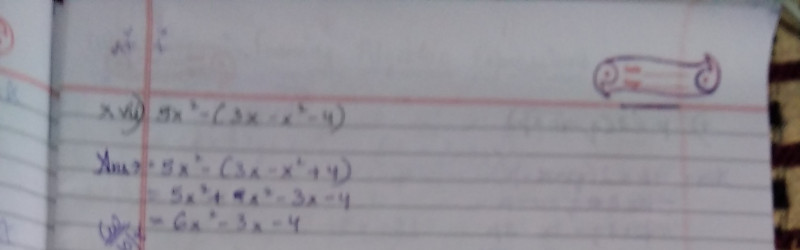 xvi) 5x² - (3x - x² - 4)
Ans → 5x² - (3x - x² + 4)
= 5x² + x² - 3x - 4
= 6x² - 3x - 4